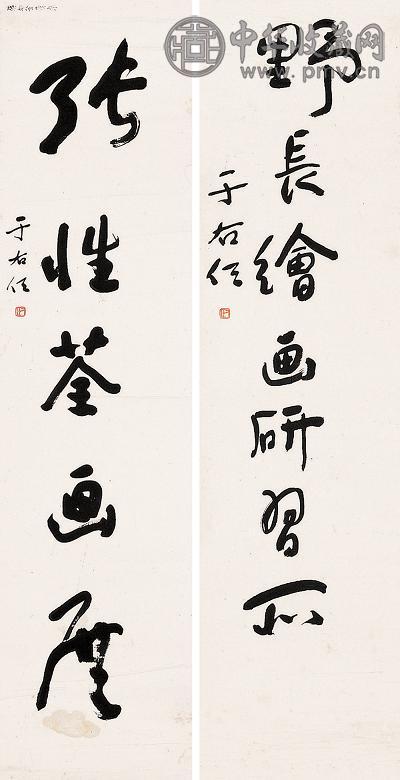 中华收藏网
www.pmv.cn
野長繪画研習所
于右任
张性荃画展
于右任